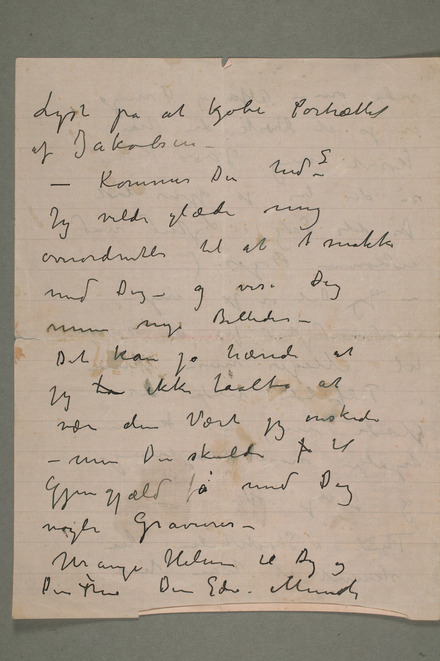 Lyst på at kjøbe Portrættet
af Jakobsen –
– Kommer Du hid –
Jeg vilde glæde mig
overordentlig til at snakke
med Dig – og vise Dig
mine nye Billeder –
Det kan jo hænde at
jeg ikke taalte at
være den Vært jeg ønskede
– men Du skulde til
Gjengjæld få med Dig
nogle Gravurer –
Mange Hilsen til Dig og
Din Frue Din Edv. Munch